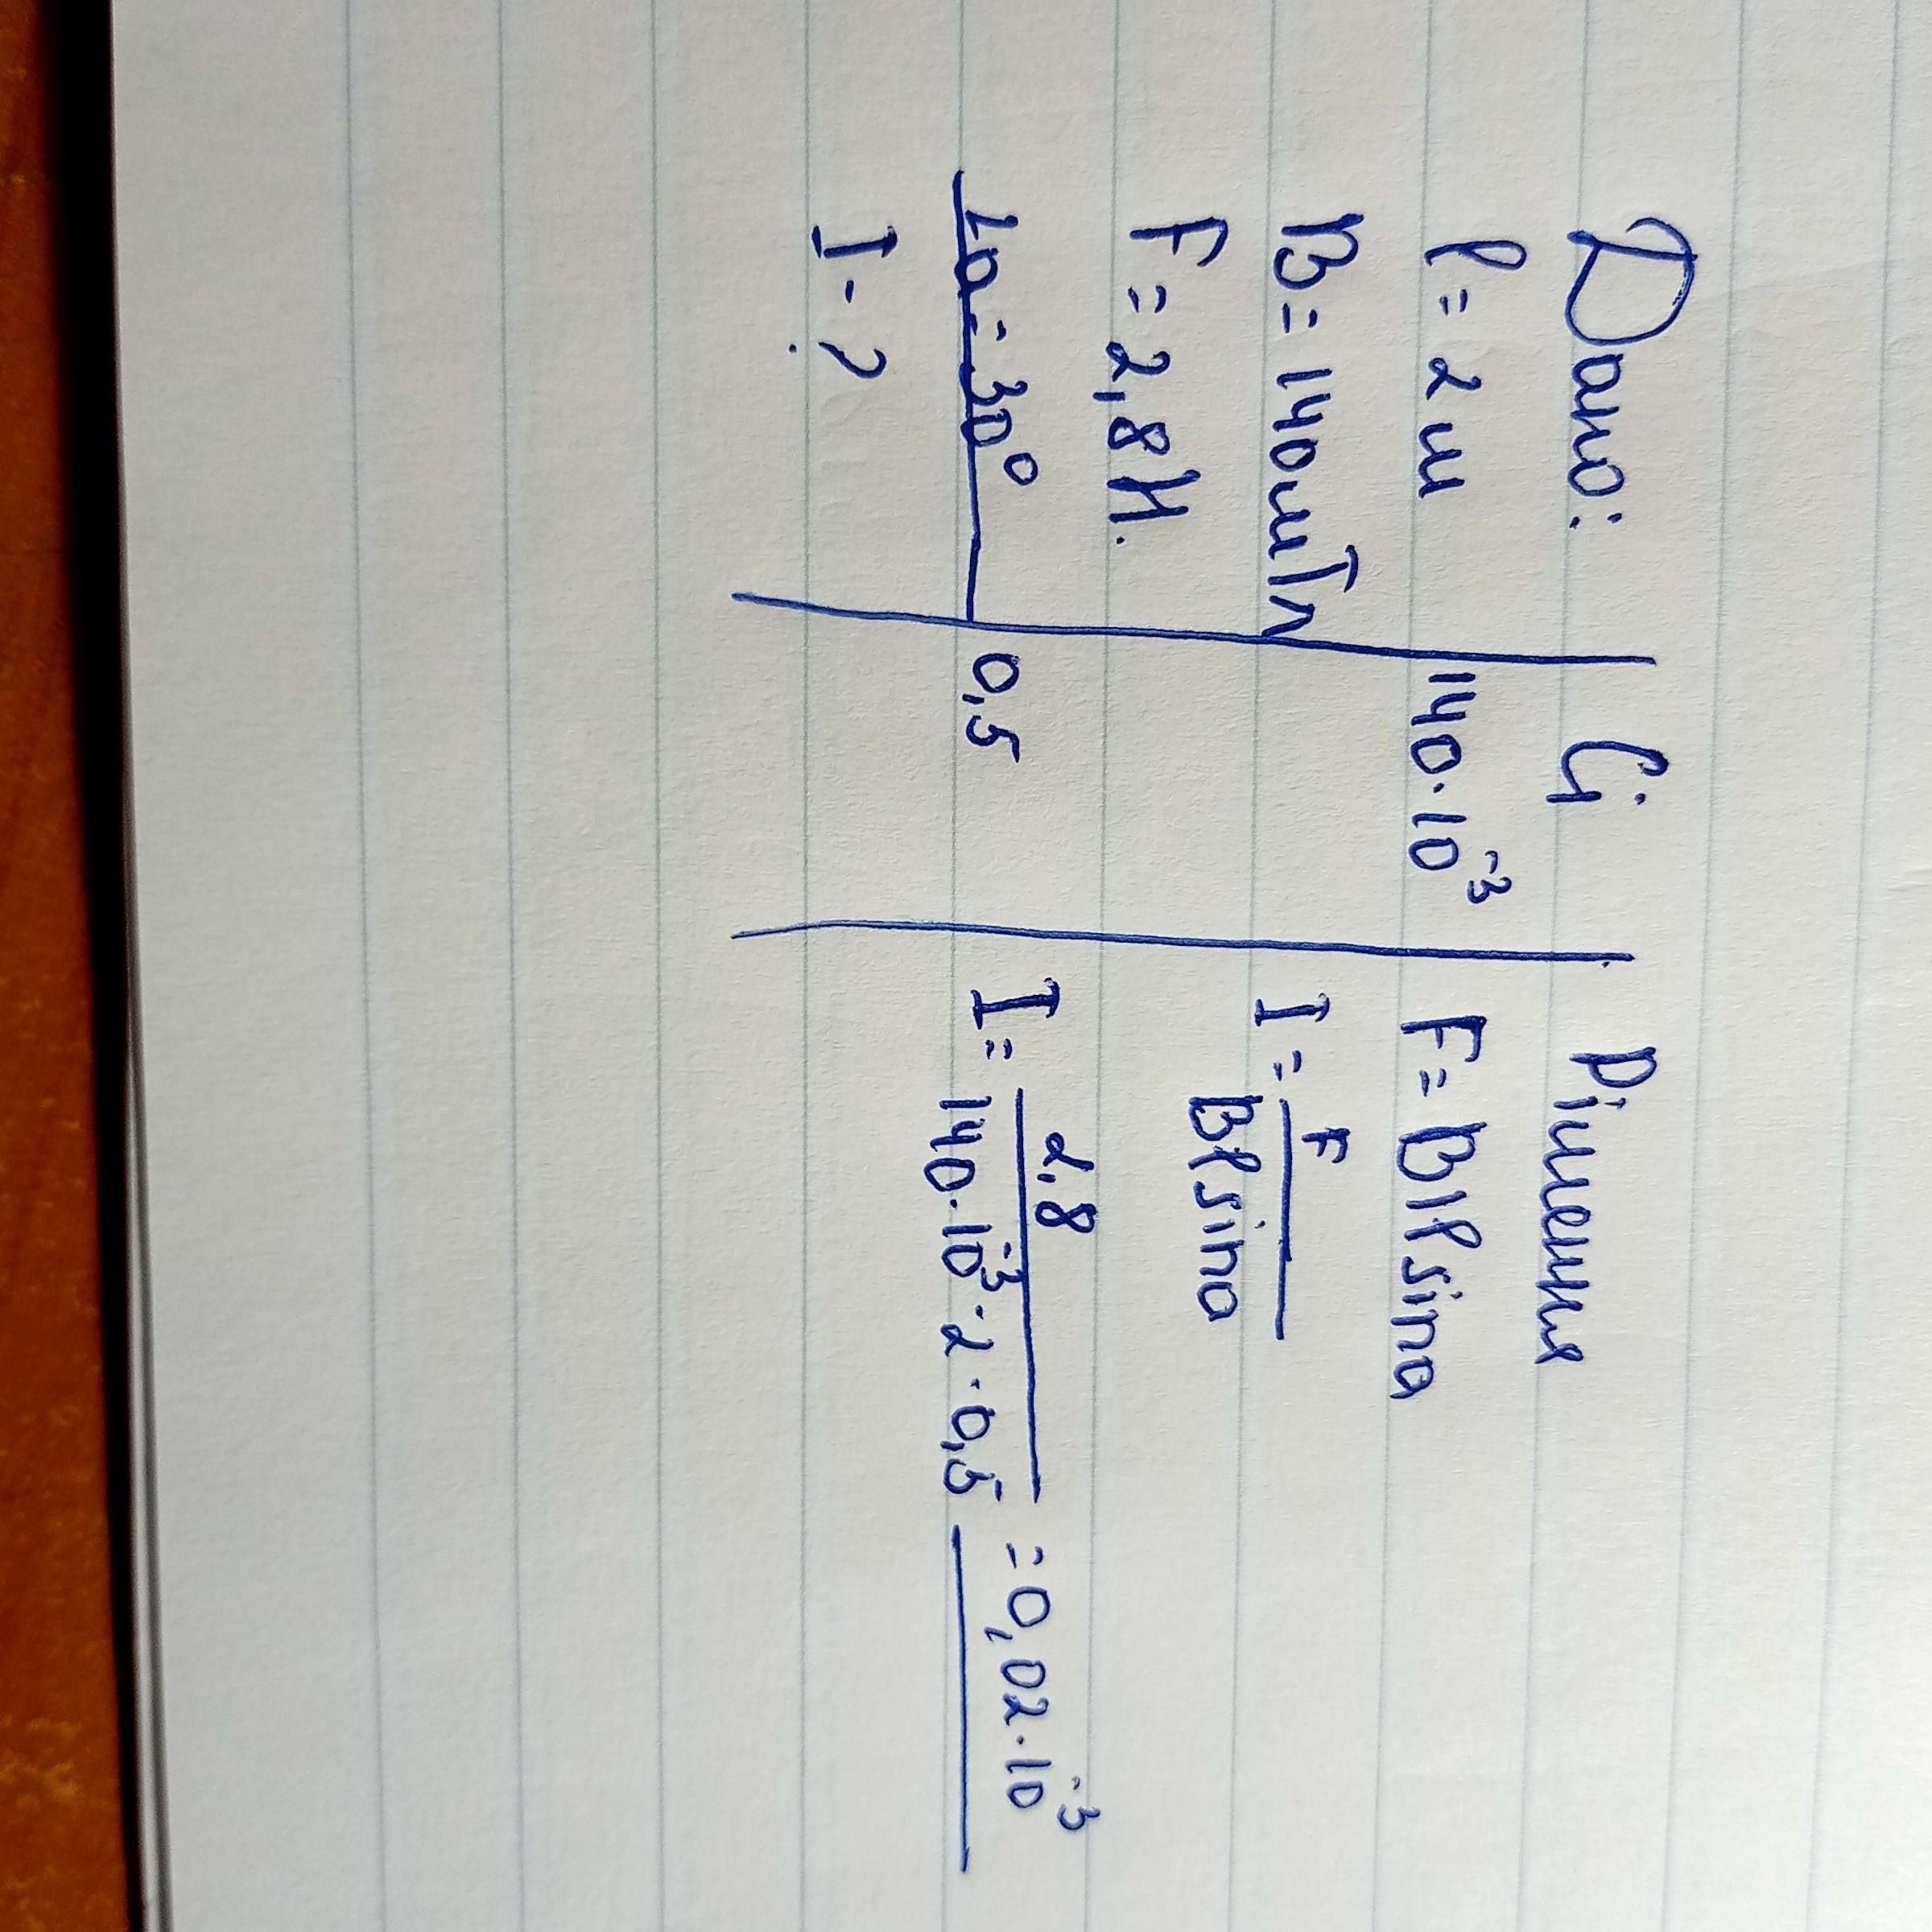 Дано:
l = 2 м
B = 140мТл
F = 2,8 Н.
∠α = 30°
I - ?
Сі
140·10⁻³
0,5
Рішення
F = BIl sinα
I = F / Bl sinα
I = 2,8 / 140·10⁻³·2·0,5 = 0,02·10⁻³